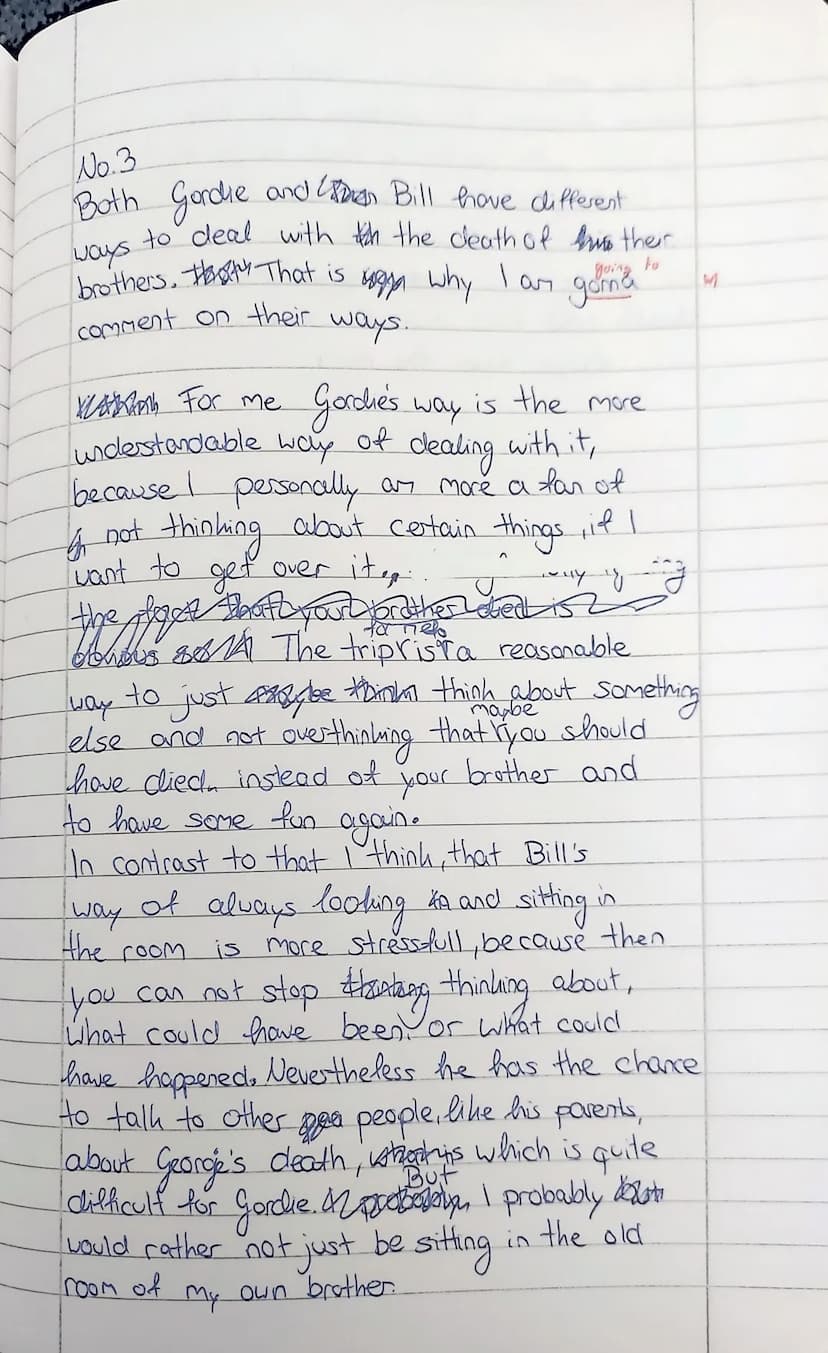 No.3
Both Gordie and Bill have different
ways to deal with the death of ther
brothers. That is why I am gonna
going to
comment on their ways.
For me Gordie's way is the more
understandable way of dealing with it,
because I personally am more a fan of
not thinking about certain things, if I
want to get over it.
the fact that your brother died is
obvious
for me
The trip is a reasonable
way to just think about something
maybe
else and not overthinking that you should
have died instead of your brother and
to have some fun again.
In contrast to that I think, that Bill's
way of always looking and sitting in
the room is more stressfull, because then
you can not stop thinking about,
what could have been or what could
have happened. Nevertheless he has the chance
to talk to other people, like his parents,
about George's death, which is quite
But
difficult for Gordie. I probably
would rather not just be sitting in the old
room of my own brother.